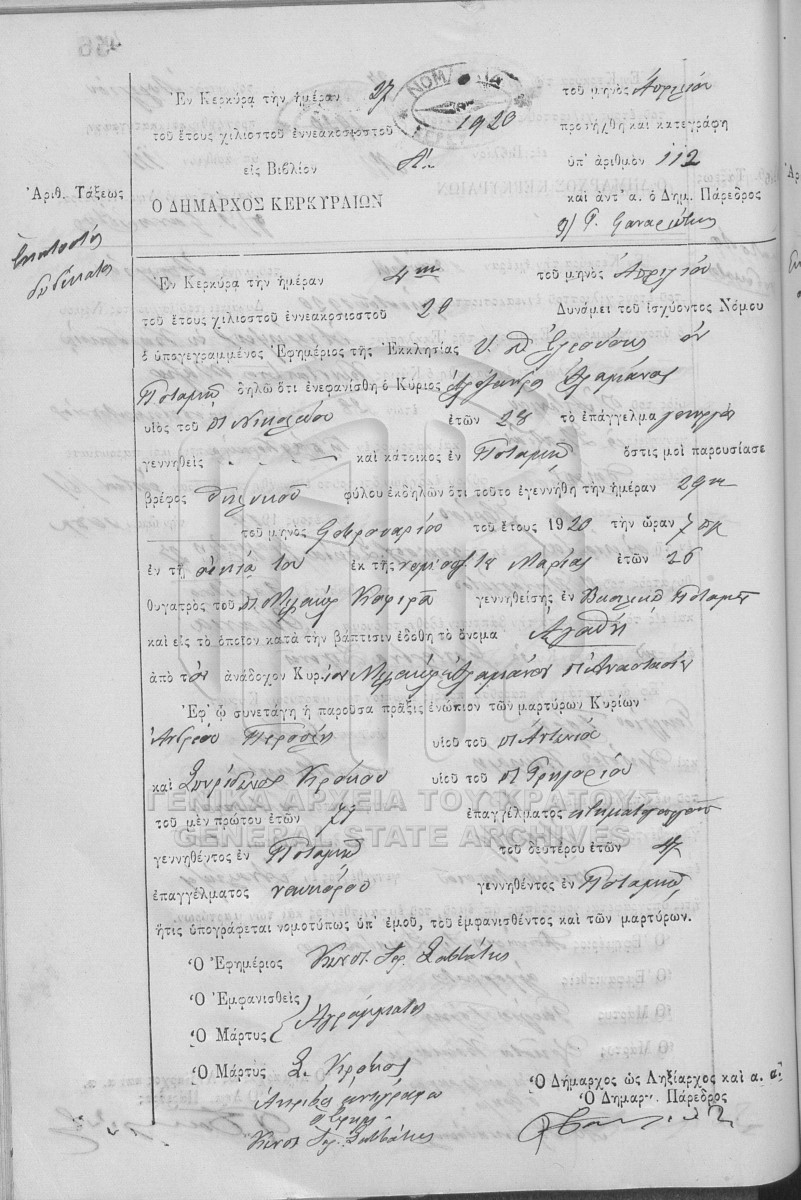 Ἐν Κερκύρᾳ τὴν ἡμέραν 27 τοῦ μηνὸς Ἀπριλίου
τοῦ ἔτους χιλιοστοῦ ἐννεακοσιοστοῦ 1920 προσήχθη καὶ κατεγράφη
εἰς Βιβλίον Α΄. ὑπ' ἀριθμὸν 112
Ἀριθ. Τάξεως
Ο ΔΗΜΑΡΧΟΣ ΚΕΡΚΥΡΑΙΩΝ καὶ ἀντ' α. ὁ Δημ. Πάρεδρος
Ἑκατοστὸς
δωδέκατος
Ἐν Κερκύρᾳ τὴν ἡμέραν 4ην τοῦ μηνὸς Ἀπριλίου
τοῦ ἔτους χιλιοστοῦ ἐννεακοσιοστοῦ 20 Δυνάμει τοῦ ἰσχύοντος Νόμου
ὁ ὑπογεγραμμένος Ἐφημέριος τῆς Ἐκκλησίας Υ. Θ. Ἐλεούσης ἐν
Ποταμῷ δηλῶ ὅτι ἐνεφανίσθη ὁ Κύριος
υἱὸς τοῦ π Νικολάου ἐτῶν 28 τὸ ἐπάγγελμα γεωργὸς
γεννηθεὶς καὶ κάτοικος ἐν Ποταμῷ ὅστις μοὶ παρουσίασε
βρέφος θηλυκοῦ φύλου ἐκδηλῶν ὅτι τοῦτο ἐγεννήθη τὴν ἡμέραν 29ην
τοῦ μηνὸς Φεβρουαρίου τοῦ ἔτους 1920 τὴν ὥραν 7 πμ
ἐν τῇ οἰκίᾳ του ἐκ τῆς Μαρίας ἐτῶν 26
θυγατρὸς τοῦ γεννηθείσης ἐν Ποταμῷ
καὶ εἰς τὸ ὁποῖον κατὰ τὴν βάπτισιν ἐδόθη τὸ ὄνομα Ἀγαθὴ
ἀπὸ τὸν ἀνάδοχον Κυρ
Ἐφ' ᾧ συνετάγη ἡ παροῦσα πρᾶξις ἐνώπιον τῶν μαρτύρων Κυρίων
Ἀνδρέου υἱοῦ τοῦ π Ἀντωνίου
καὶ Σπυρίδωνος Κρόκου υἱοῦ τοῦ π Γρηγορίου
ΓΕΝΙΚΑ ΑΡΧΕΙΑ ΤΟΥ ΚΡΑΤΟΥΣ
τοῦ μὲν πρώτου ἐτῶν 71 ἐπαγγέλματος κτηματίου
GENERAL STATE ARCHIVES
γεννηθέντος ἐν Ποταμῷ τοῦ δευτέρου ἐτῶν 47
ἐπαγγέλματος νεωκόρου γεννηθέντος ἐν Ποταμῷ,
ἥτις ὑπογράφεται νομοτύπως ὑπ' ἐμοῦ, τοῦ ἐμφανισθέντος καὶ τῶν μαρτύρων.
Ὁ Ἐφημέριος Κωνστ. Σαββάτης
Ὁ Ἐμφανισθεὶς
Ὁ Μάρτυς Ἀγράμματος
Ὁ Μάρτυς Σ. Κρόκος
Ὁ Δήμαρχος ὡς Ληξίαρχος καὶ α. α
Ὁ Δημαρ. Πάρεδρος
Ἀκριβὲς ἀντίγραφο
Κωνστ. Σαββάτης